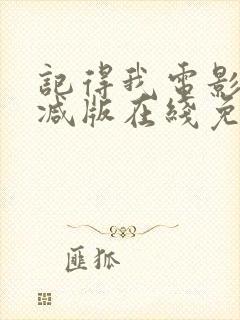 記得我電影
减版在綫免
匪狐